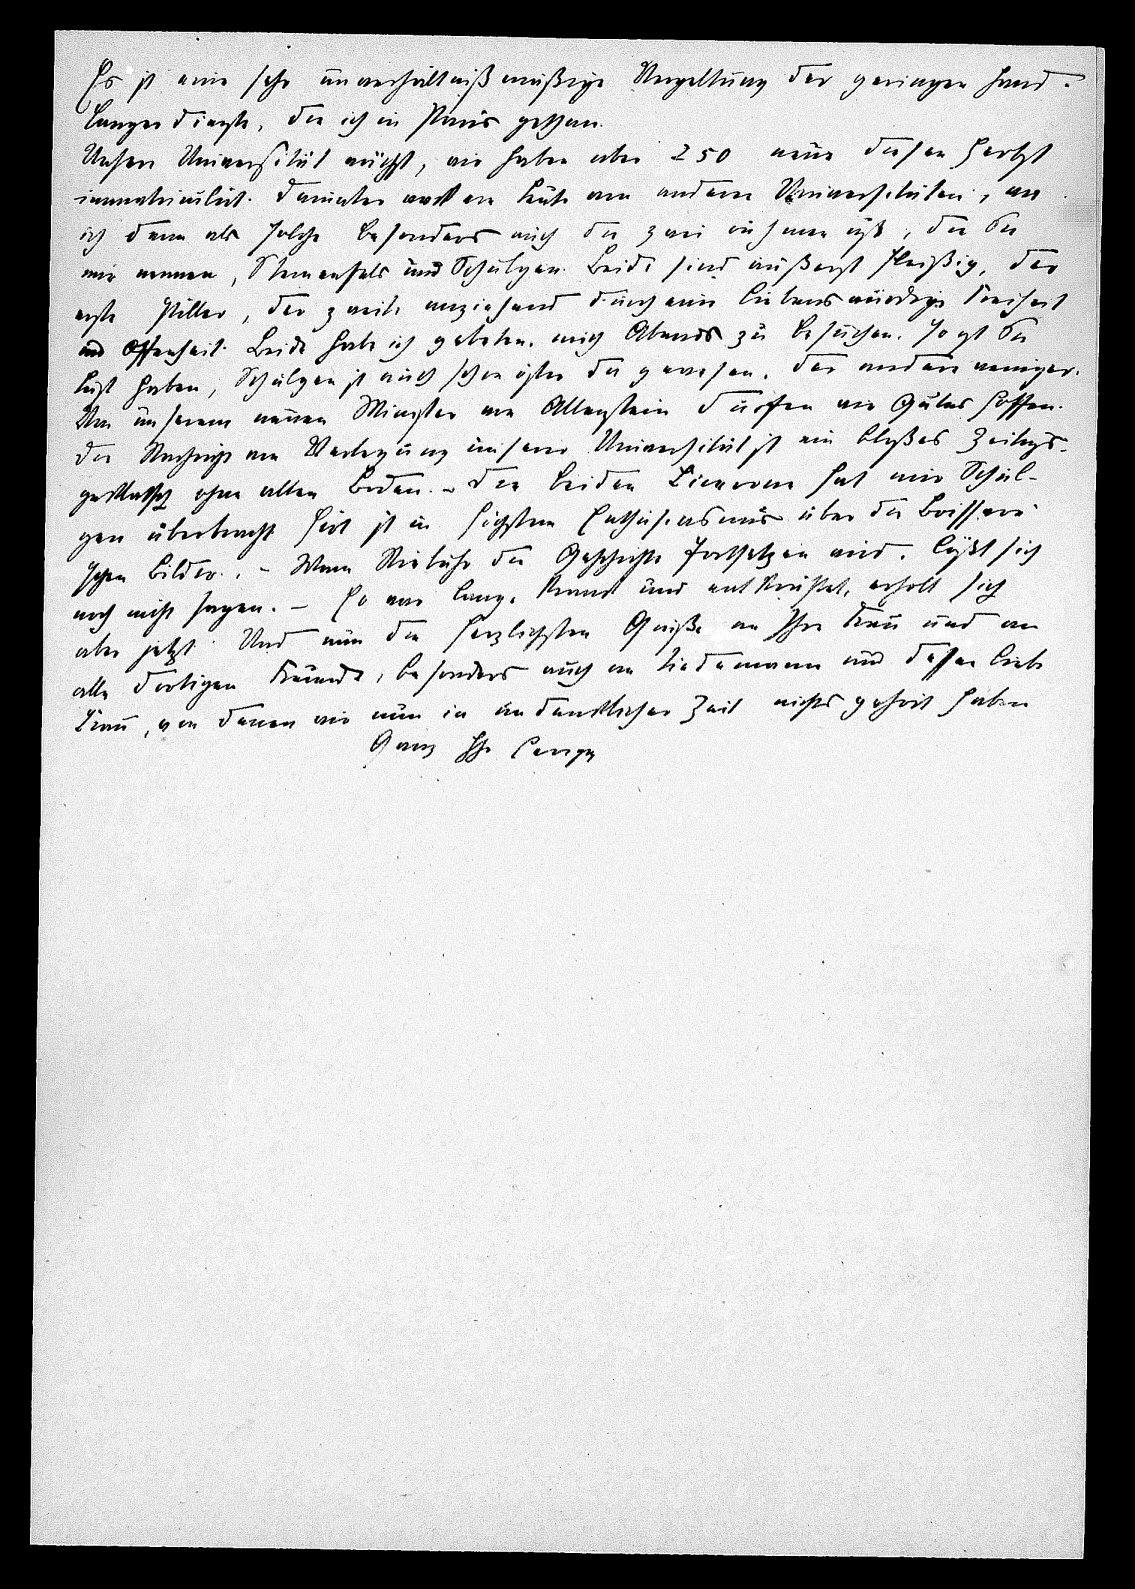 Es ist eine sehr unverhältnißmäßige Vergeltung der geringen Hand-
langerdienste, die ich in Paris gethan.
Unsere Universität wächst, wir haben über 250 neue diesen Herbst
immatriculirt. Darunter Leute von andern Universitäten,
ich denn als solche besonders auch die zwei die Sie
mir nennen, und Schulgen. Beide sind äußerst fleißig, der
erste stiller, der zweite anziehend durch eine liebenswürdige Freiheit
und Offenheit. Beide habe ich gebeten, mich Abends zu besuchen. So gt Sie
Lust haben, Schulgen ist auch schon öfter da gewesen, der andere weniger.
Von unserem neuen Minister von Altenstein dürfen wir Gutes hoffen.
Die Nachricht von Verlegung unserer Universität ist ein bloßes Zeitungs-
geklatsch ohne allen Boden. – Die beiden Cicerone hat mir Schul-
gen überbracht Hirt ist in höchstem Enthusiasmus über die Boisseré-
schen Bilder. – Wann Niebuhr die Geschichte fortsetzen wird, läßt sich
noch nicht sagen. – Er war lange krank und entkräftet, erholt sich
aber jetzt. Und nun die herzlichsten Grüße an Ihre Frau und an
alle dortigen Freunde, besonders auch an Tiedemann und dessen liebe
Frau, von denen wir nun in undenklicher Zeit nichts gehört haben
Ganz Ihr Savigny